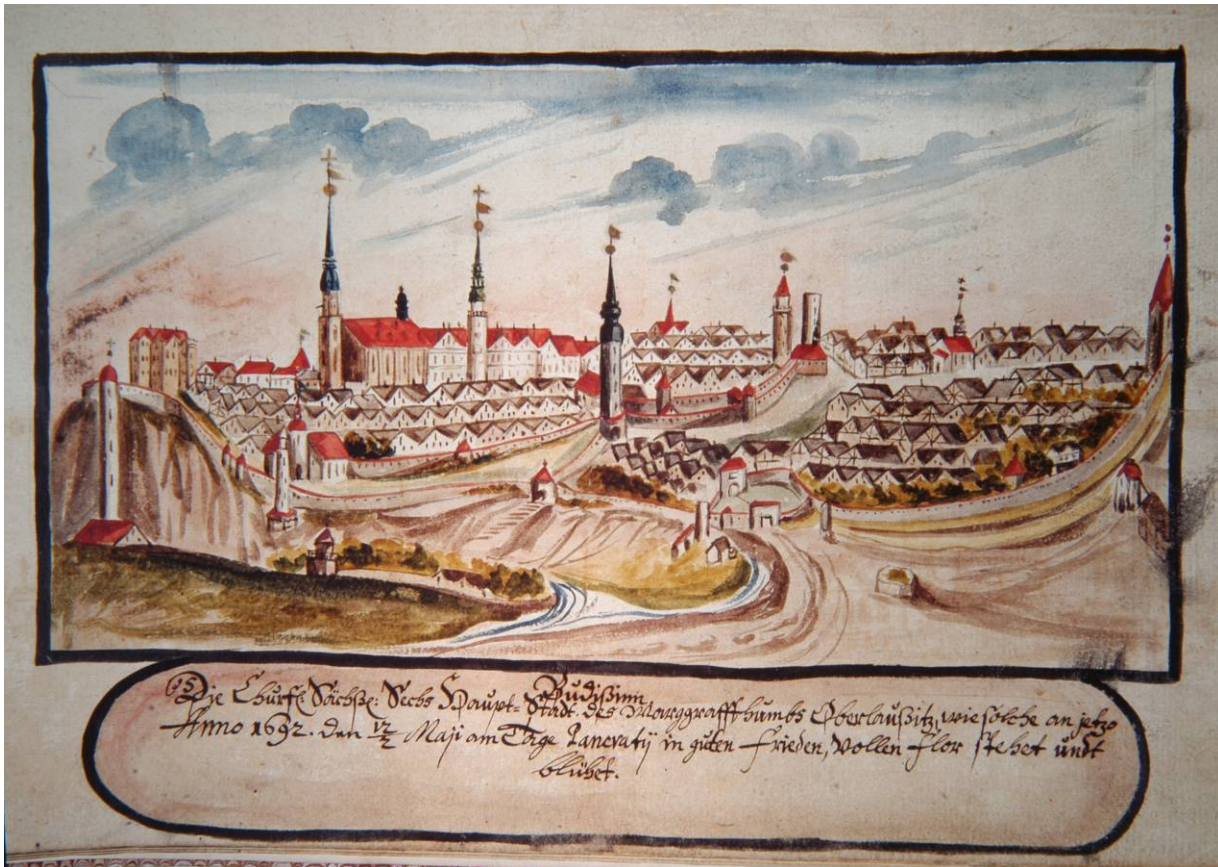 Budißinn
Die Churfl: Sächße: Sechs Haupt-Stadt des Marggraffthumbs Oberlaußitz, wie solche an jetzo
Anno 1692. den 12/2 Maji am Tage Pancratij in guten Frieden, Vollen Flor stehet undt
blühet.